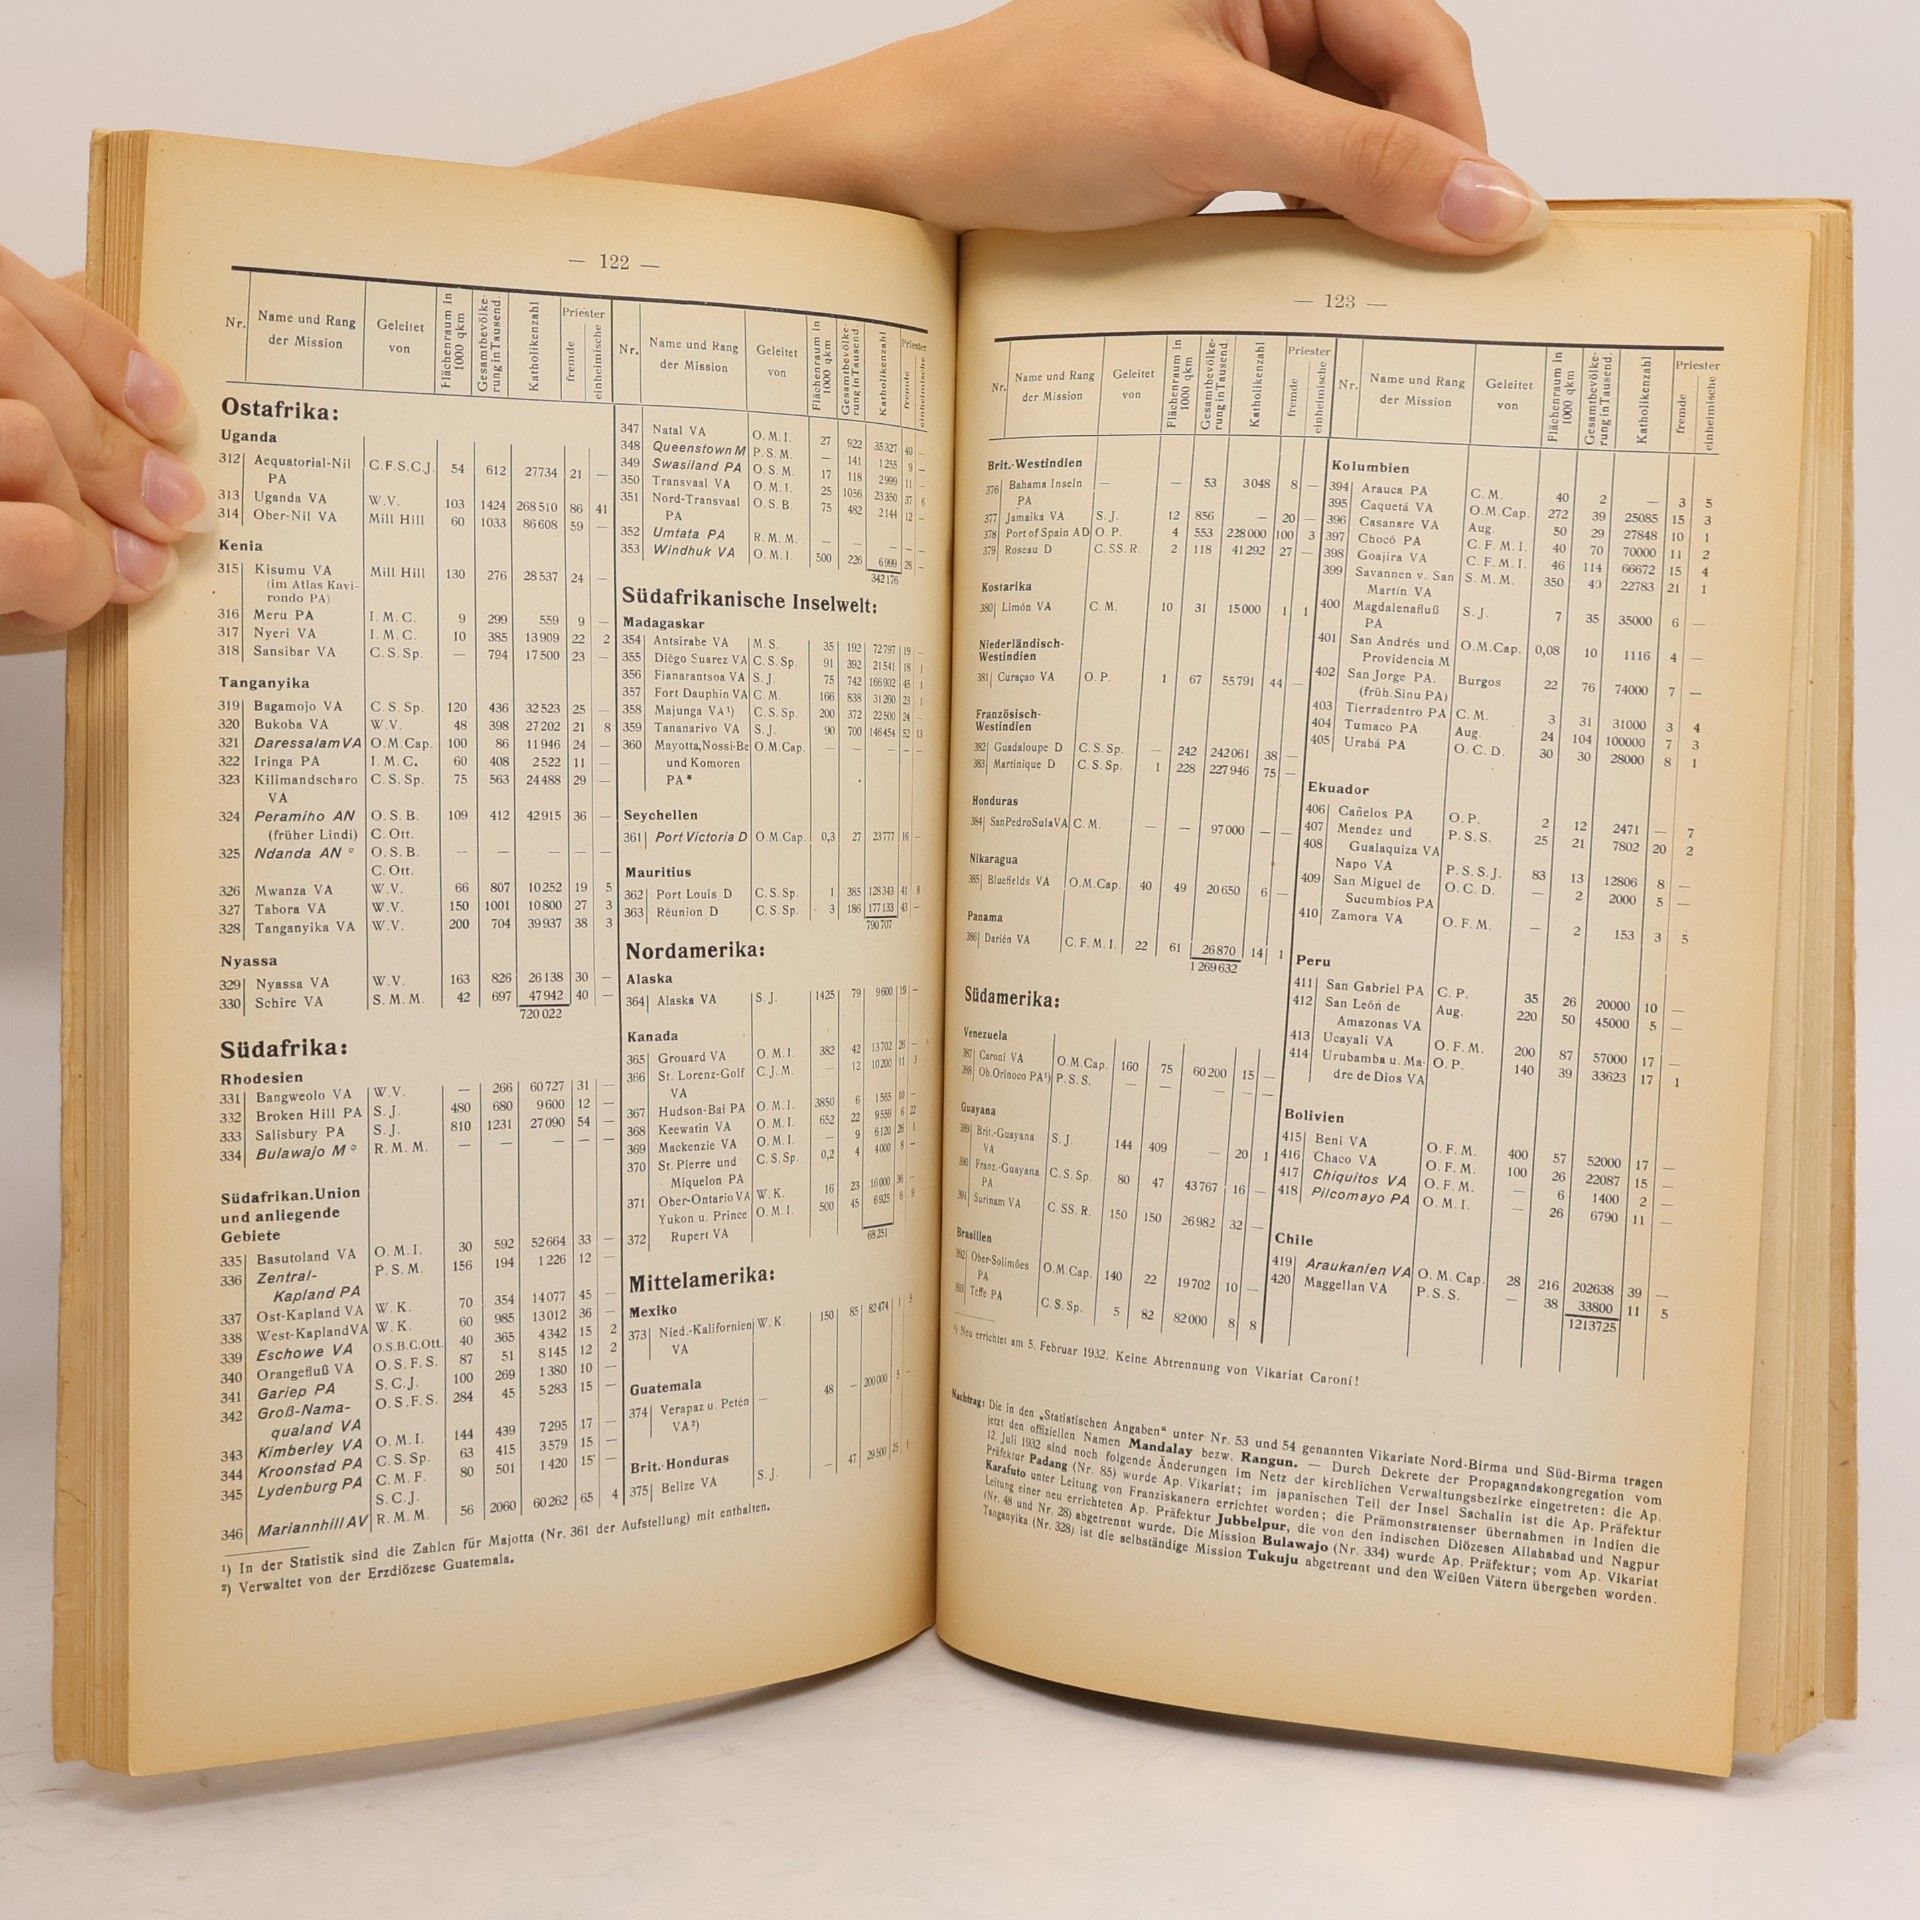 — 122 —
Nr. Name und Rang der Mission Geleitet von Flächenraum in 1000 qkm Gesamtbevölkerung in Tausend. Katholikenzahl Priester fremde einheimische
Ostafrika:
Uganda
312 Aequatorial-Nil C.F.S.C.J. 54 612 27734 21 —
PA
313 Uganda VA W.V. 103 1424 268510 86 41
314 Ober-Nil VA Mill Hill 60 1033 86608 59 —
Kenia
315 Kisumu VA Mill Hill 130 276 28537 24 —
(im Atlas Kavi-
rondo PA)
316 Meru PA I.M.C. 9 299 559 9 —
317 Nyeri VA I.M.C. 10 385 13909 22 2
318 Sansibar VA C.S.Sp. — 794 17500 23 —
Tanganyika
319 Bagamojo VA C.S.Sp. 120 436 32523 25 —
320 Bukoba VA W.V. 48 398 27202 21 8
321 Daressalam VA O.M.Cap. 100 86 11946 24 —
322 Iringa PA I.M.C. 60 408 2522 11 —
323 Kilimandscharo C.S.Sp. 75 563 24488 29 —
VA
324 Peramiho AN O.S.B. 109 412 42915 36 —
(früher Lindi) C.Ott.
325 Ndanda AN * O.S.B. — — — — —
C.Ott.
326 Mwanza VA W.V. 66 807 10252 19 5
327 Tabora VA W.V. 150 1001 10800 27 3
328 Tanganyika VA W.V. 200 704 39937 38 3
Nyassa
329 Nyassa VA W.V. 163 826 26138 30 —
330 Schire VA S.M.M. 42 697 47942 40 —
720022
Südafrika:
Rhodesien
331 Bangweolo VA W.V. — 266 60727 31 —
332 Broken Hill PA S.J. 480 680 9600 12 —
333 Salisbury PA S.J. 810 1231 27090 54 —
334 Bulawajo M * R.M.M. — — — — —
Südafrikan. Union
und anliegende
Gebiete
335 Basutoland VA O.M.I. 30 592 52664 33 —
336 Zentral- P.S.M. 156 194 1226 12 —
Kapland PA
337 Ost-Kapland VA W.K. 70 354 14077 45 —
338 West-Kapland VA W.K. 60 985 13012 36 —
339 Eschowe VA O.S.B.C.Ott. 40 365 4342 15 2
340 Orangefluß VA O.S.F.S. 87 51 8145 12 2
341 Gariep PA S.C.J. 100 269 1380 10 —
342 Groß-Nama- O.S.F.S. 284 45 5283 15 —
qualand VA
343 Kimberley VA O.M.I. 144 439 7295 17 —
344 Kroonstad PA C.S.Sp. 63 415 3579 15 —
345 Lydenburg PA C.M.F. 80 501 1420 15 —
S.C.J.
346 Mariannhill AV R.M.M. 56 2060 60262 65 4
Nr. Name und Rang der Mission Geleitet von Flächenraum in 1000 qkm Gesamtbevölkerung in Tausend. Katholikenzahl Priester fremde einheimische
347 Natal VA O.M.I. 27 922 35327 40 —
348 Queenstown M P.S.M. — 141 1255 9 —
349 Swasiland PA O.S.M. 17 118 2999 11 —
350 Transvaal VA O.M.I. 25 1056 23350 37 6
351 Nord-Transvaal O.S.B. 75 482 2144 12 —
PA
352 Umtata PA R.M.M. — — — — —
353 Windhuk VA O.M.I. 500 226 6999 28 —
342176
Südafrikanische Inselwelt:
Madagaskar
354 Antsirabe VA M.S. 35 192 72797 19 —
355 Diégo Suarez VA C.S.Sp. 91 392 21541 18 1
356 Fianarantsoa VA S.J. 75 742 166902 45 1
357 Fort Dauphin VA C.M. 166 838 31260 23 1
358 Majunga VA¹) C.S.Sp. 200 372 22500 24 —
359 Tananarivo VA S.J. 90 700 146454 52 13
360 Mayotta, Nossi-Be O.M.Cap. — — — — —
und Komoren
PA*
Seychellen
361 Port Victoria D O.M.Cap. 0,3 27 23777 16 —
Mauritius
362 Port Louis D C.S.Sp. 1 385 128343 41 8
363 Réunion D C.S.Sp. 3 186 177133 43 —
790707
Nordamerika:
Alaska
364 Alaska VA S.J. 1425 79 9600 19 —
Kanada
365 Grouard VA O.M.I. 382 42 13702 26 —
366 St. Lorenz-Golf C.J.M. — 12 10200 11 3
VA
367 Hudson-Bai PA O.M.I. 3850 6 1565 10 —
368 Keewatin VA O.M.I. 652 22 9559 6 22
369 Mackenzie VA O.M.I. — 9 6120 26 1
370 St. Pierre und C.S.Sp. 0,2 4 4000 8 —
Miquelon PA
371 Ober-Ontario VA W.K. 16 23 16000 36 —
Yukon u. Prince O.M.I. 500 45 6925 6 9
372 Rupert VA
68251
Mittelamerika:
Mexiko
373 Nied.-Kalifornien W.K. 150 85 82474 1 5
VA
Guatemala
374 Verapaz u. Petén — 48 — 200000 5 —
VA²)
Brit.-Honduras
375 Belize VA S.J. — 47 29500 25 1
¹) In der Statistik sind die Zahlen für Majotta (Nr. 361 der Aufstellung) mit enthalten.
²) Verwaltet von der Erzdiözese Guatemala.
— 123 —
Nr. Name und Rang der Mission Geleitet von Flächenraum in 1000 qkm Gesamtbevölkerung in Tausend. Katholikenzahl Priester fremde einheimische
Brit.-Westindien
376 Bahama Inseln — — 53 3048 8 —
PA
377 Jamaika VA S.J. 12 856 — 20 —
378 Port of Spain AD O.P. 4 553 228000 100 3
379 Roseau D C.SS.R. 2 118 41292 27 —
Kostarika
380 Limón VA C.M. 10 31 15000 1 1
Niederländisch-
Westindien
381 Curaçao VA O.P. 1 67 55791 44 —
Französisch-
Westindien
382 Guadaloupe D C.S.Sp. — 242 242061 38 —
383 Martinique D C.S.Sp. 1 228 227946 75 —
Honduras
384 San Pedro Sula VA C.M. — — 97000 — —
Nikaragua
385 Bluefields VA O.M.Cap. 40 49 20650 6 —
Panama
386 Darién VA C.F.M.I. 22 61 26870 14 1
1269632
Südamerika:
Venezuela
387 Caroní VA O.M.Cap. 160 75 60200 15 —
388 Ob. Orinoco PA¹) P.S.S. — — — — —
Guayana
389 Brit.-Guayana S.J. 144 409 — 20 1
VA
390 Franz.-Guayana C.S.Sp. 80 47 43767 16 —
PA
391 Surinam VA C.SS.R. 150 150 26982 32 —
Brasilien
392 Ober-Solimões O.M.Cap. 140 22 19702 10 —
PA
393 Teffe PA C.S.Sp. 5 82 82000 8 8
Nr. Name und Rang der Mission Geleitet von Flächenraum in 1000 qkm Gesamtbevölkerung in Tausend. Katholikenzahl Priester fremde einheimische
Kolumbien
394 Arauca PA C.M. 40 2 — 3 5
395 Caquetá VA O.M.Cap. 272 39 25085 15 3
396 Casanare VA Aug. 50 29 27848 10 1
397 Chocó PA C.F.M.I. 40 70 70000 11 2
398 Goajira VA C.F.M.I. 46 114 66672 15 4
399 Savannen v. San S.M.M. 350 40 22783 21 1
Martin VA
400 Magdalenafluß S.J. 7 35 35000 6 —
PA
401 San Andrés und O.M.Cap. 0,08 10 1116 4 —
Providencia M
402 San Jorge PA. Burgos 22 76 74000 7 —
(früh. Sinu PA)
403 Tierradentro PA C.M. 3 31 31000 3 4
404 Tumaco PA Aug. 24 104 100000 7 3
405 Urabá PA O.C.D. 30 30 28000 8 1
Ekuador
406 Cañelos PA O.P. 2 12 2471 — 7
407 Mendez und P.S.S. 25 21 7802 20 2
408 Gualaquiza VA
Napo VA P.S.S.J. 83 13 12806 8 —
409 San Miguel de O.C.D. — 2 2000 5 —
Sucumbíos PA
410 Zamora VA O.F.M. — 2 153 3 5
Peru
411 San Gabriel PA C.P. 35 26 20000 10 —
412 San León de Aug. 220 50 45000 5 —
Amazonas VA
413 Ucayali VA O.F.M. 200 87 57000 17 —
414 Urubamba u. Ma- O.P. 140 39 33623 17 1
dre de Dios VA
Bolivien
415 Beni VA O.F.M. 400 57 52000 17 —
416 Chaco VA O.F.M. 100 26 22087 15 —
417 Chiquitos VA O.F.M. — 6 1400 2 —
418 Pilcomayo PA O.M.I. — 26 6790 11 —
Chile
419 Araukanien VA O.M.Cap. 28 216 202638 39 —
420 Maggellan VA P.S.S. — 38 33800 11 5
1213725
¹) Neu errichtet am 5. Februar 1932. Keine Abtrennung von Vikariat Caroní!
Nachtrag: Die in den „Statistischen Angaben“ unter Nr. 53 und 54 genannten Vikariate Nord-Birma und Süd-Birma tragen
jetzt den offiziellen Namen Mandalay bezw. Rangun. — Durch Dekrete der Propagandakongregation vom
12. Juli 1932 sind noch folgende Änderungen im Netz der kirchlichen Verwaltungsbezirke eingetreten: die Ap.
Präfektur Padang (Nr. 85) wurde Ap. Vikariat; im japanischen Teil der Insel Sachalin ist die Ap. Präfektur
Karafuto unter Leitung von Franziskanern errichtet worden; die Prämonstratenser übernahmen in Indien die
Leitung einer neu errichteten Ap. Präfektur Jubbelpur, die von den indischen Diözesen Allahabad und Nagpur
(Nr. 48 und Nr. 28) abgetrennt wurde. Die Mission Bulawajo (Nr. 334) wurde Ap. Präfektur; vom Ap. Vikariat
Tanganyika (Nr. 328) ist die selbständige Mission Tukuju abgetrennt und den Weißen Vätern übergeben worden.